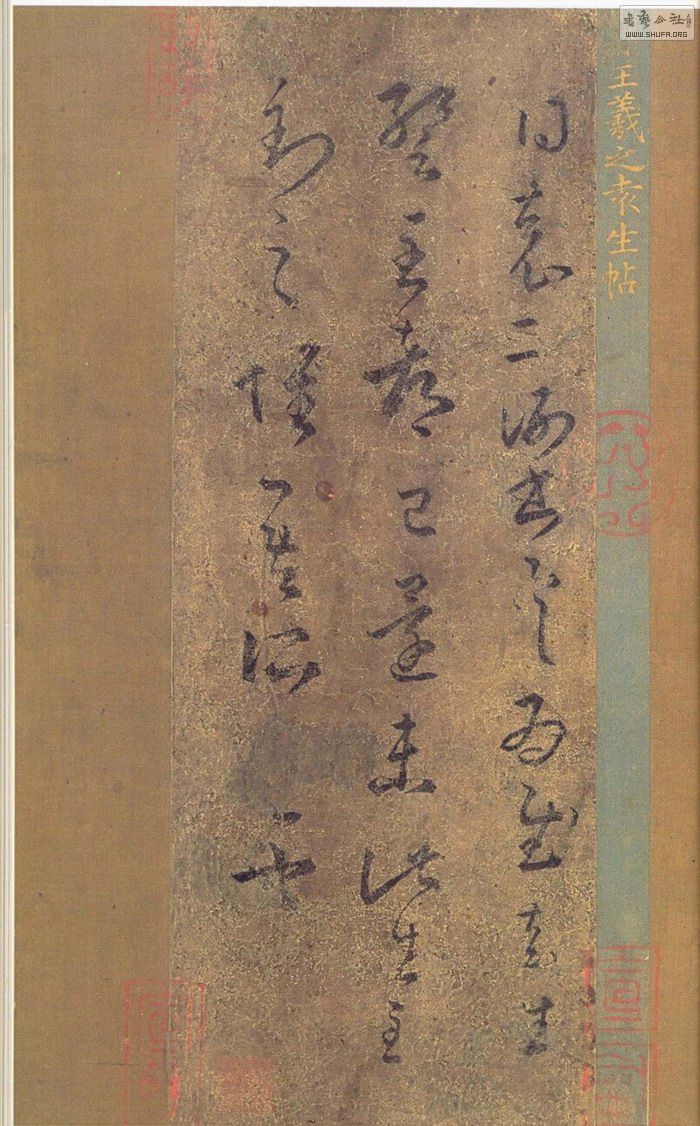 書藝公社
WWW.SHUFA.ORG
王羲之袁生帖
得袁二謝書具為慰袁生
暫至都已還未此生至
到之懷吾所也